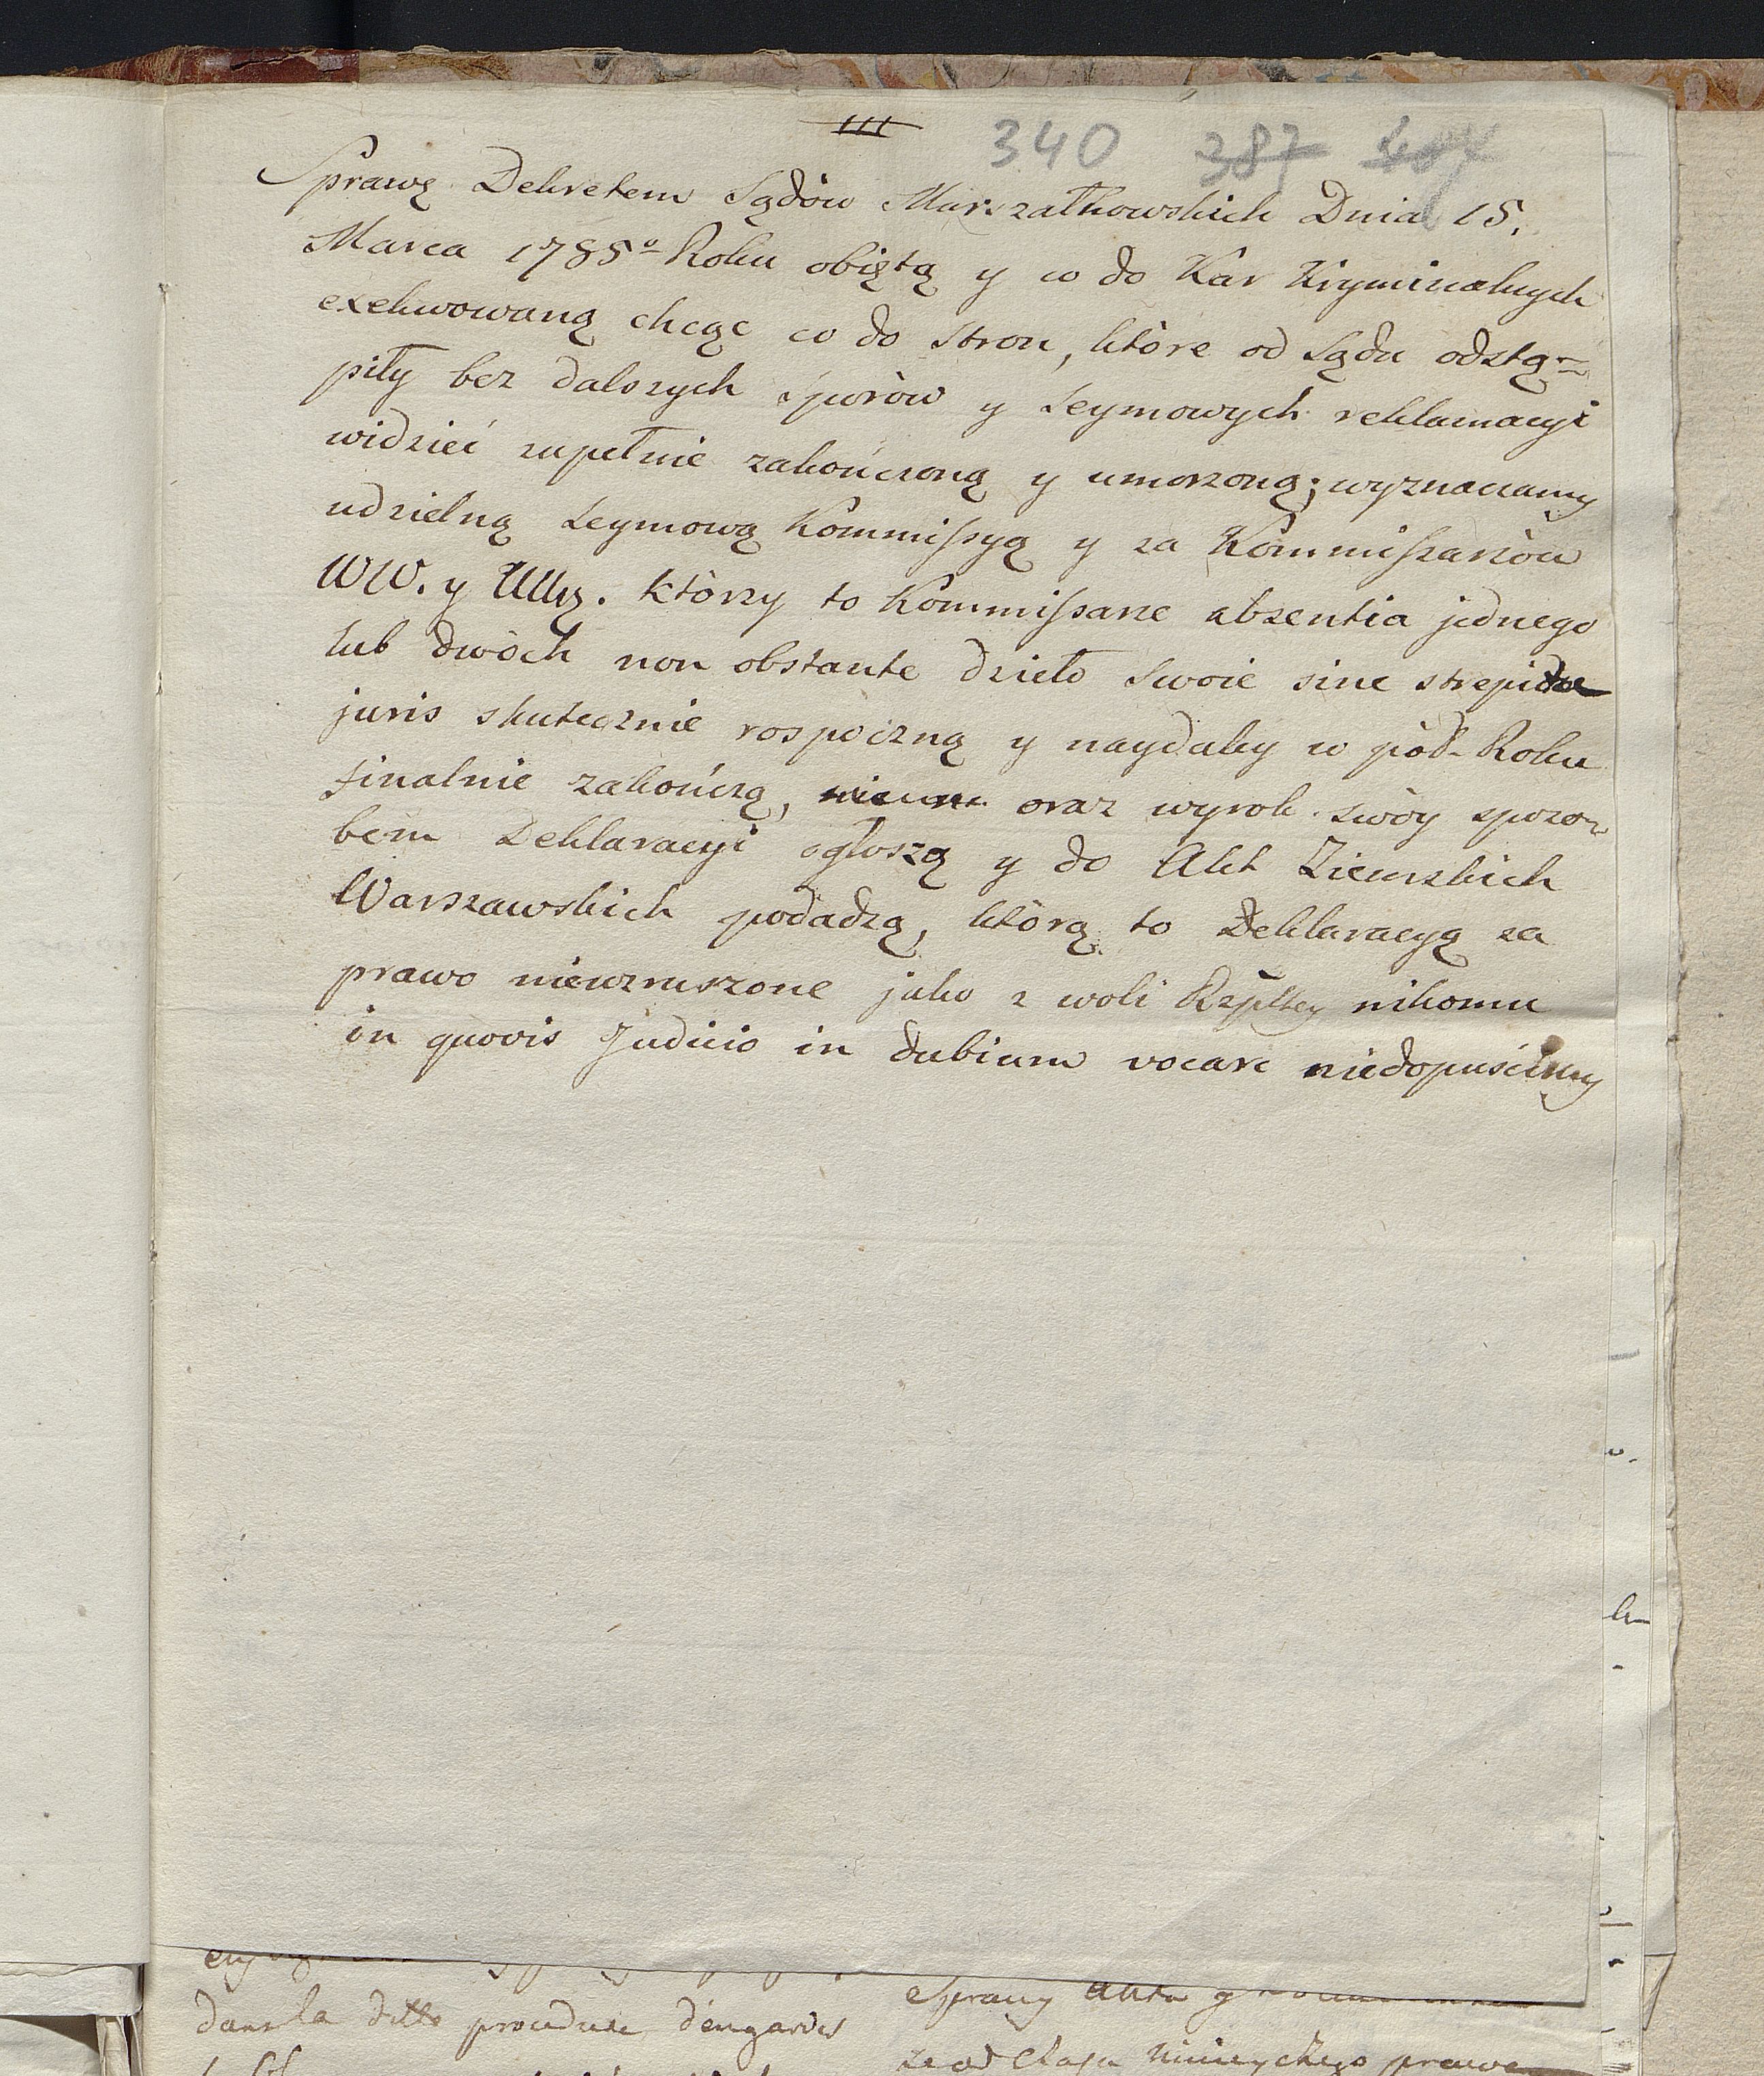 III 340 387
Sprawę Dekretem Sądów Marszałkowskich Dnia 15.
Marca 1785º Roku obiętą y co do Kar Kryminalnych
exekwowaną chcąc co do stron, które od Sądu odstą=
piły bez dalszych sporów y Seymowych reklamacyi
widzieć zupełnie zakończoną y umorzoną; wyznaczamy
udzielną Seymową Kommissyą y za Kommissarzów
WW. y UUr. którzy to Kommissarze absentia jednego
lub dwóch non obstante dzieło swoie sine strepitu
juris skutecznie rospoczną y naydaley w pół-Roku
finalnie zakończą, oraz wyrok swóy sposo=
bem Deklaracyi ogłoszą y do Akt Ziemskich
Warszawskich podadzą, którą to Deklaracyą za
prawo niewzruszone jako z woli Rzpltey nikomu
in quovis Judicio in dubium vocare niedopuściemy
dans la ditte procedure d'engardes
Sprawy Aktu
prawa